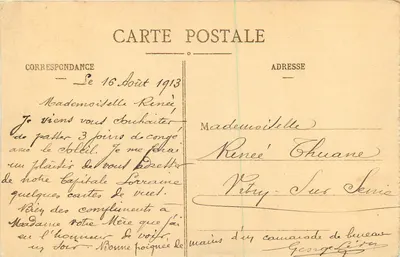 CARTE POSTALE
CORRESPONDANCE
ADRESSE
Le 16 Août 1913
Mademoiselle Renée,
Je viens vous souhaiter
de passer 3 jours de congé
avec le soleil. Je me ferai
un plaisir de vous adresser
de notre Capitale Lorraine
quelques cartes de vues.
Bien des compliments à
Madame votre Mère que j'ai
eu l'honneur de voir
un soir. Bonne poignée de
mains d'un camarade de bureau
Mademoiselle
Renée Thuane
Vitry-Sur Seine